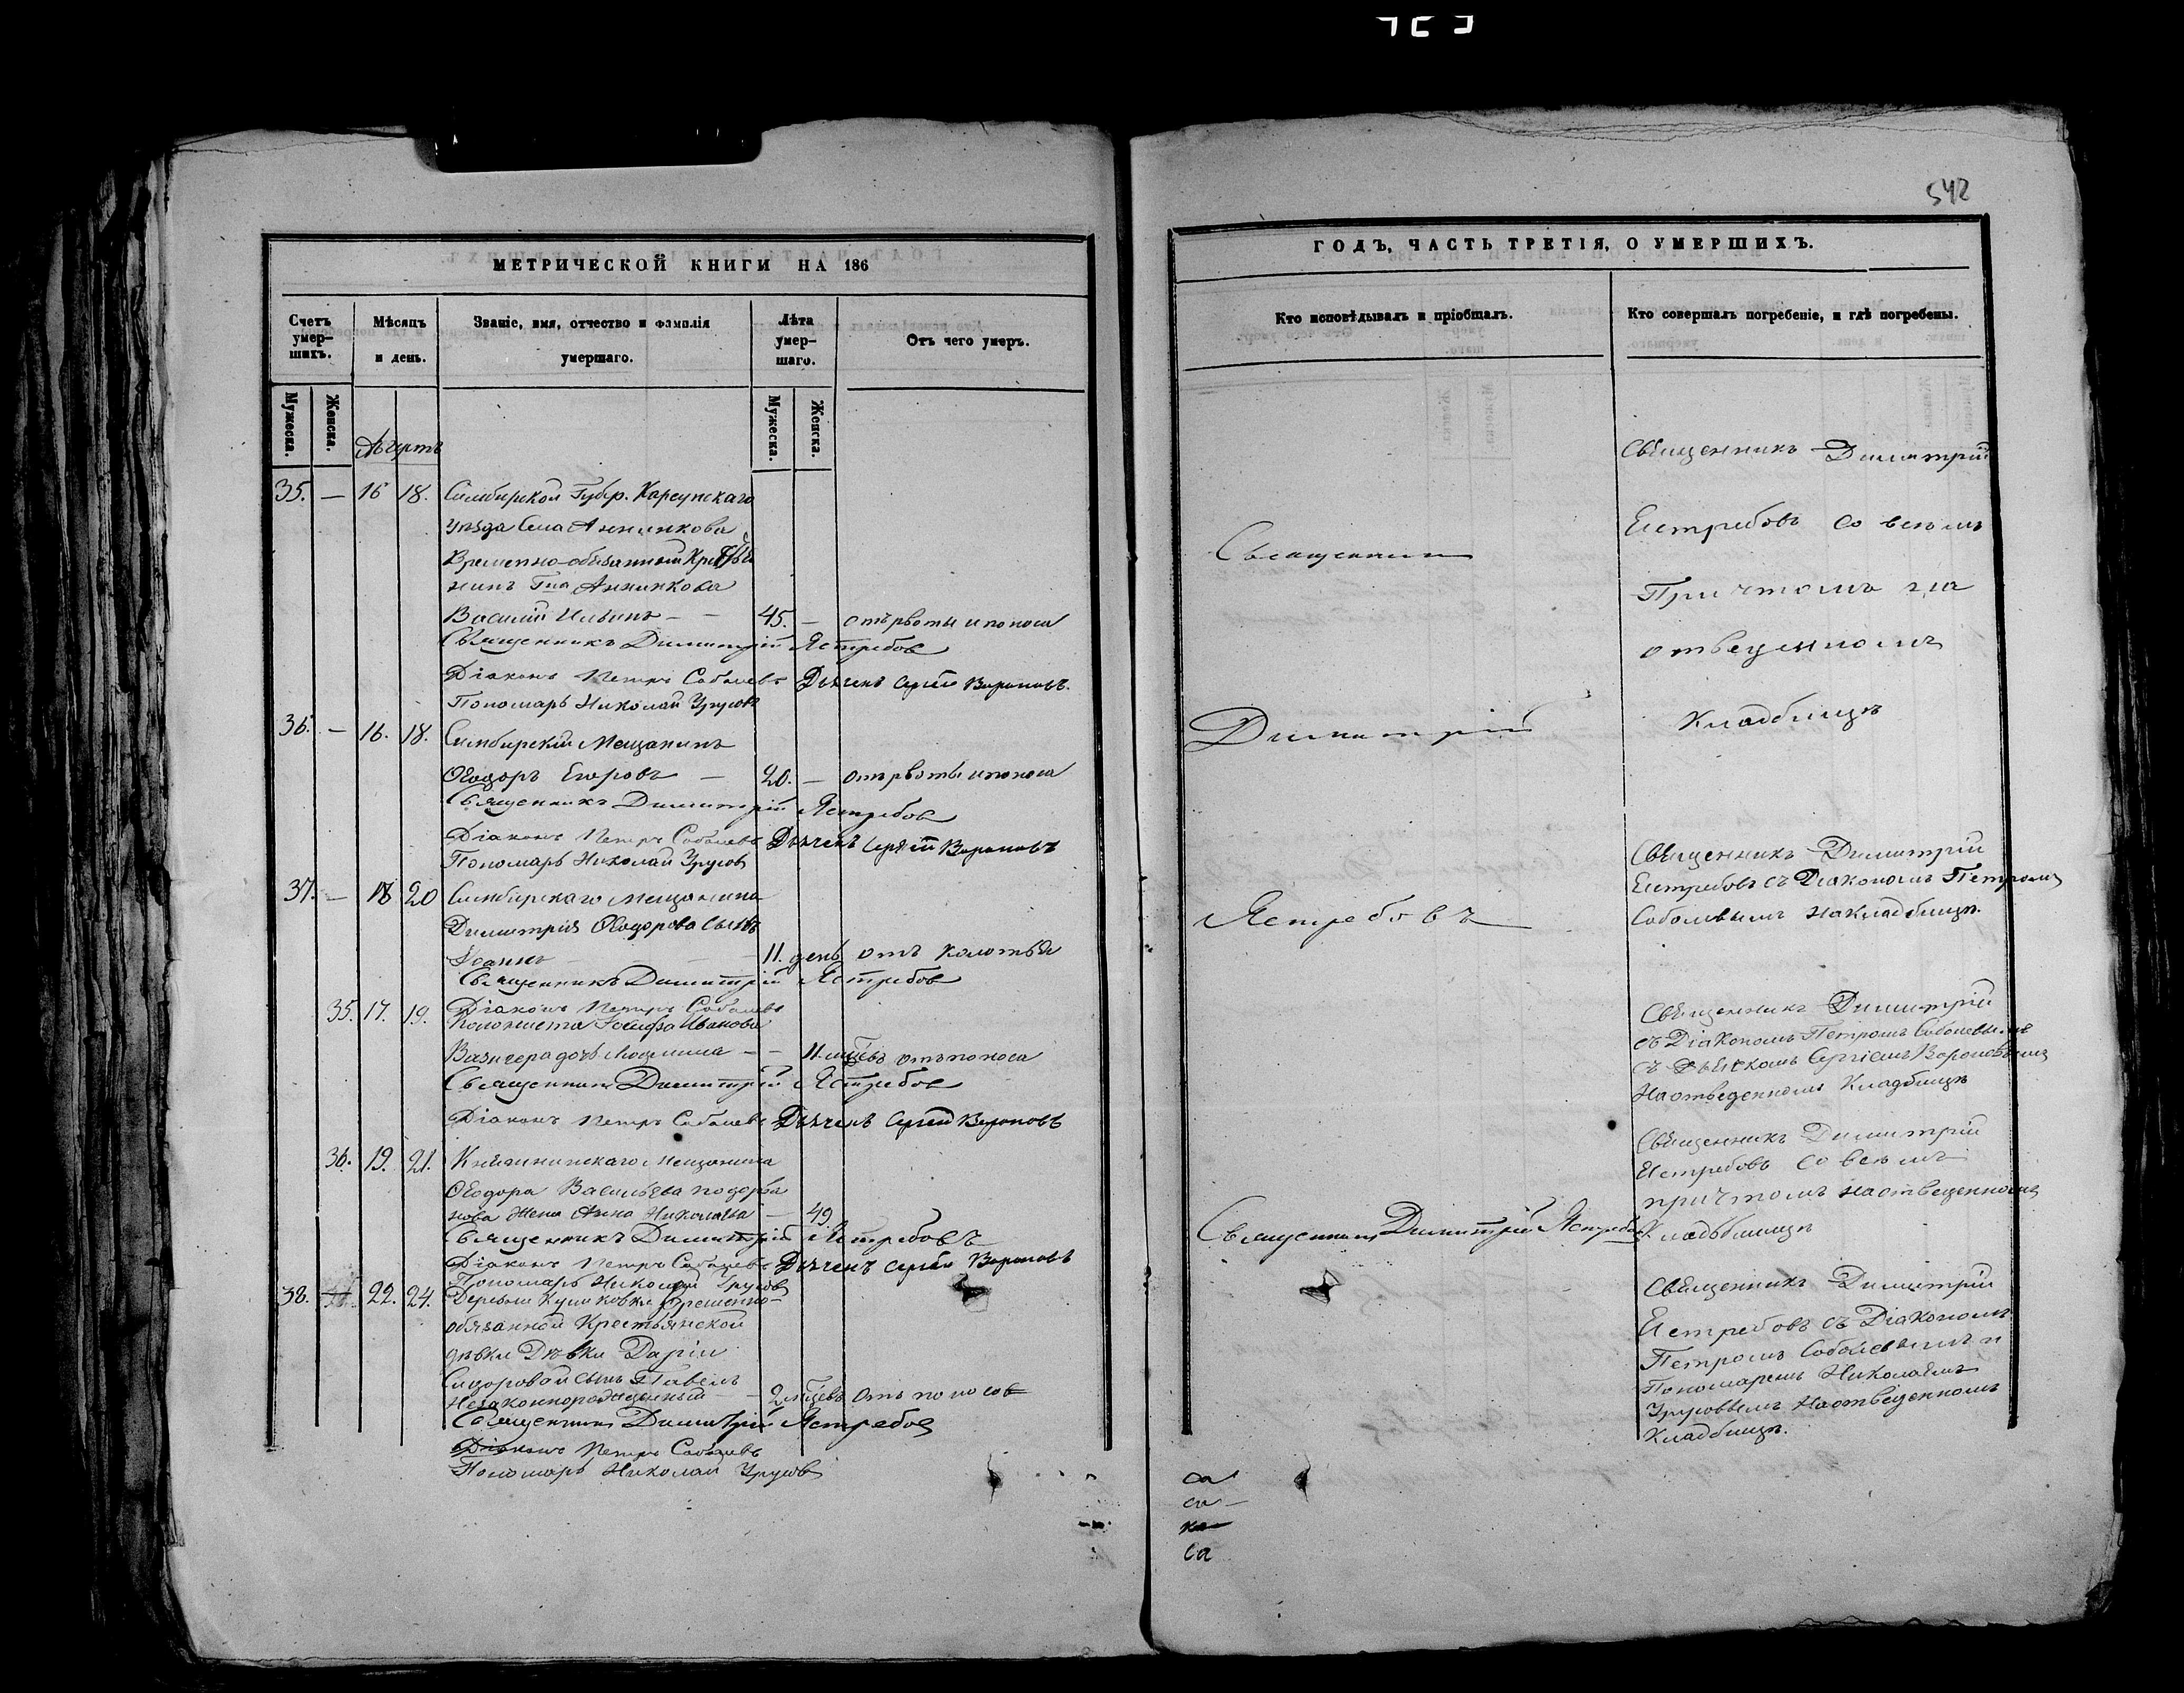 542
МЕТРИЧЕСКОЙ КНИГИ НА 186
Счетъ умер-шихъ.
Мѣсяцъ и день.
Званіе, имя, отчество и фамилія умершаго.
Лѣта умер-шаго.
Отъ чего умеръ.
Мужеска.
Женска.
Мужеска.
Женска.
Августъ
35. — 16 18. Симбирской Губер. Карсунскаго
уѣзда Села Анненкова
Временно-обязанный Кресть
нинъ Гна Анненкова
Василій Ильинъ — 45. — отъ рвоты и поноса
Священникъ Димитрій Ястребов
Діаконъ Петръ Соболевъ Дьячекъ Сергей Вороновъ.
Пономарь Николай Урусовъ
36. — 16. 18. Симбирскій Мещанинъ
Ѳеодоръ Егоровъ — 20. — отъ рвоты и поноса
Священникъ Димитрій Ястребов
Діаконъ Петръ Соболевъ Дьячекъ Сергей Вороновъ
Пономарь Николай Урусов
37. — 18 20 Симбирскаго Мещанина
Димитрія Ѳеодорова сынъ
Іоаннъ — 11. день отъ колотья
Священникъ Димитрій Ястребов
Діаконъ Петръ Соболевъ
35. 17. 19. Колониста Іосифа Иванова
дочь — 11. мцевъ отъ поноса
Священникъ Димитрій Ястребов
Діаконъ Петръ Соболевъ Дьячекъ Сергей Вороновъ
36. 19. 21. Мещанина
Ѳеодора Васильева
нова Жена Анна Николаева — 49.
Священникъ Димитрій Ястребовъ
Діаконъ Петръ Соболевъ Дьячекъ Сергей Вороновъ
Пономарь Николай Урусовъ
38. 22. 24. Деревни Куликовки временно-
обязанной Крестьянской
дѣвки Дѣвки Даріи
Сидоровой сынъ Павелъ
Незаконнорожденный — 2 мцевъ отъ поносов
Священникъ Димитрій Ястребов
Діаконъ Петръ Соболевъ
Пономарь Николай Урусов
ГОДЪ, ЧАСТЬ ТРЕТІЯ, О УМЕРШИХЪ.
Кто исповѣдывалъ и пріобщалъ.
Кто совершалъ погребеніе, и гдѣ погребены.
Священникъ
Димитрій
Ястребовъ
Священникъ Димитрій Ястребов
Священникъ Димитрій
Ястребовъ со всемъ
Причтомъ на
отведенномъ
Кладбищѣ
Священникъ Димитрій
Ястребовъ съ Діакономъ Петромъ
Соболевымъ на кладбищѣ.
Священникъ Димитрій
съ Діакономъ Петромъ Соболевымъ
съ Дьячкомъ Сергіемъ Вороновымъ
На отведенномъ Кладбищѣ
Священникъ Димитрій
Ястребовъ со всемъ
причтомъ на отведенномъ
Кладбищѣ
Священникъ Димитрій
Ястребовъ съ Діакономъ
Петромъ Соболевымъ и
Пономаремъ Николаемъ
Урусовымъ На отведенномъ
Кладбищѣ.
са
са
ка
са